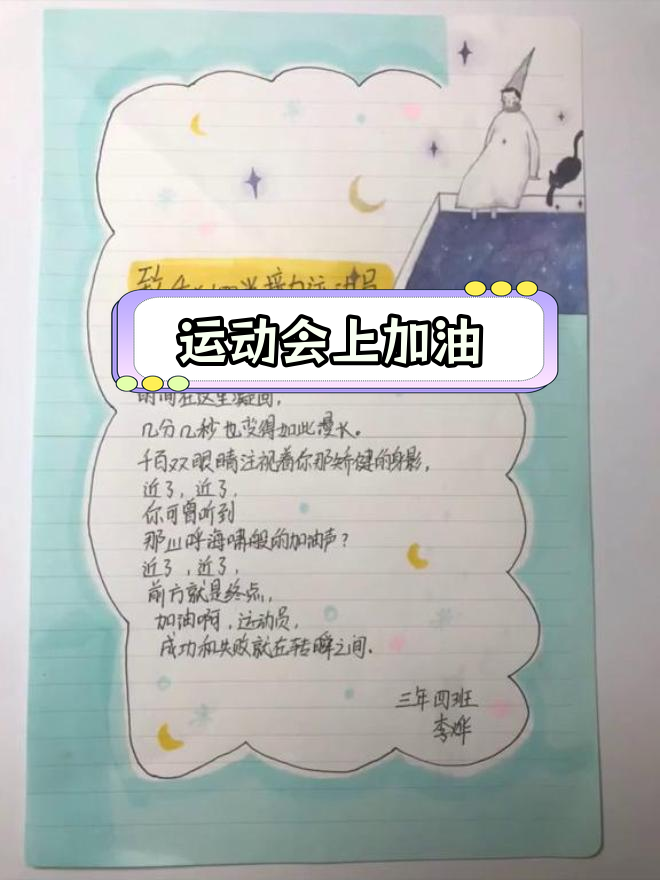 接力运动员
运动会上加油
时间在这里凝固，
几分几秒也变得如此漫长。
千百双眼睛注视着你那矫健的身影，
近了，近了，
你可曾听到
那山呼海啸般的加油声？
近了，近了，
前方就是终点，
加油啊，运动员，
成功和失败就在转瞬之间.
三年四班
李烨